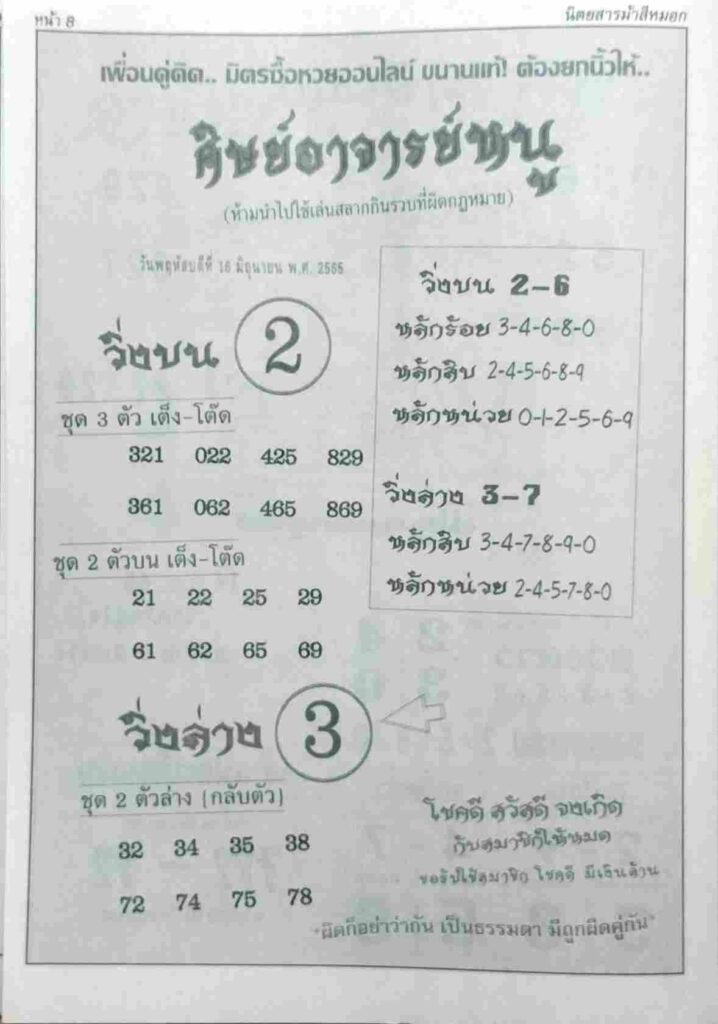 หน้า 8
นิตยสารม้าสีหมอก
เพื่อนคู่คิด.. มิตรซื้อหวยออนไลน์ ขนานแท้! ต้องยกนิ้วให้..
ศิษย์อาจารย์หนู
(ห้ามนำไปใช้เล่นสลากกินรวบที่ผิดกฎหมาย)
วันพฤหัสบดีที่ 16 มิถุนายน พ.ศ. 2565
วิ่งบน 2
ชุด 3 ตัว เต็ง-โต๊ด
321 022 425 829
361 062 465 869
ชุด 2 ตัวบน เต็ง-โต๊ด
21 22 25 29
61 62 65 69
วิ่งบน 2-6
หลักร้อย 3-4-6-8-0
หลักสิบ 2-4-5-6-8-9
หลักหน่วย 0-1-2-5-6-9
วิ่งล่าง 3-7
หลักสิบ 3-4-7-8-9-0
หลักหน่วย 2-4-5-7-8-0
วิ่งล่าง 3
ชุด 2 ตัวล่าง (กลับตัว)
32 34 35 38
72 74 75 78
โชคดี สวัสดี จงเกิด
กับสมาชิกให้หมด
ขอให้สมาชิก โชคดี มีเงินล้าน
"ผิดก็อย่าว่ากัน เป็นธรรมดา มีถูกผิดคู่กัน"